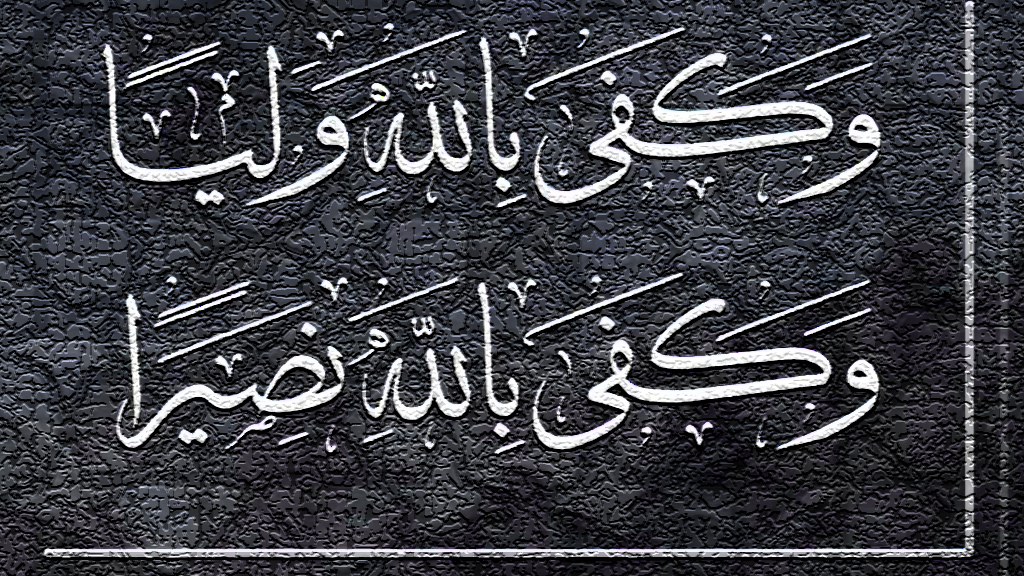 وَكَفَىٰ بِاللَّهِ وَلِيًّا
وَكَفَىٰ بِاللَّهِ نَصِيرًا